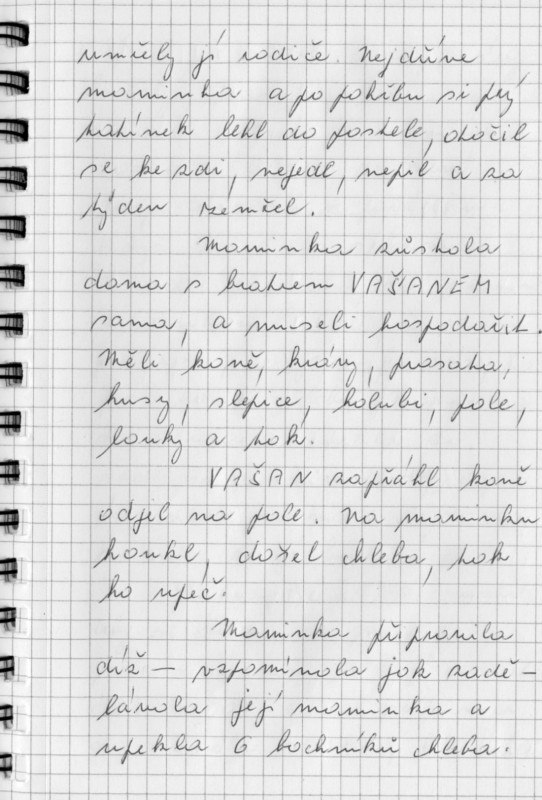 umřely jí rodiče. Nejdříve
maminka a po pohřbu si prý
tatínek lehl do postele, otočil
se ke zdi, nejedl, nepil a za
týden zemřel.
Maminka zůstala
doma s bratrem VAŠANEM
sama, a museli hospodařit.
Měli koně, krávy, prasata,
husy, slepice, holubi, pole,
louky a tak.
VAŠAN zapřáhl koně
odjel na pole. Na maminku
houkl, došel chleba, tak
ho upeč.
Maminka připravila
díž – vzpomínala jak zadě-
lávala její maminka a
upekla 6 bochníků chleba.